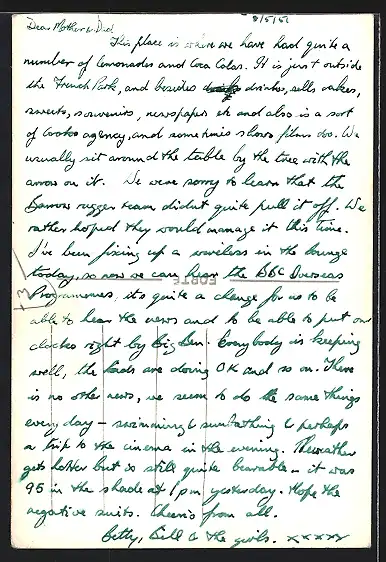 Dear Mother & Dad
8/5/51
This place is where we have had quite a
number of lemonades and Coca Colas. It is just outside
the French Park, and besides drinks, sells cakes,
sweets, souvenirs, newspapers etc and also is a sort
of Cooks agency, and sometimes shows films too. We
usually sit around the table by the tree with the
arrow on it. We were sorry to learn that the
Barrow rugger team didnt quite pull it off. We
rather hoped they would manage it this time.
I've been fixing up a wireless in the lounge
today, so now we can hear the BBC Overseas
Programmes, it's quite a change for us to be
able to hear the news and to be able to put our
clocks right by Big Ben. Everybody is keeping
well, the kids are doing OK and so on. There
is no other news, we seem to do the same things
every day – swimming & sunbathing & perhaps
a trip to the cinema in the evening. The weather
gets hotter but is still quite bearable – it was
95 in the shade at 1 pm yesterday. Hope the
negative suits. Cheerio from all.
Betty, Bill & the girls. xxxxx